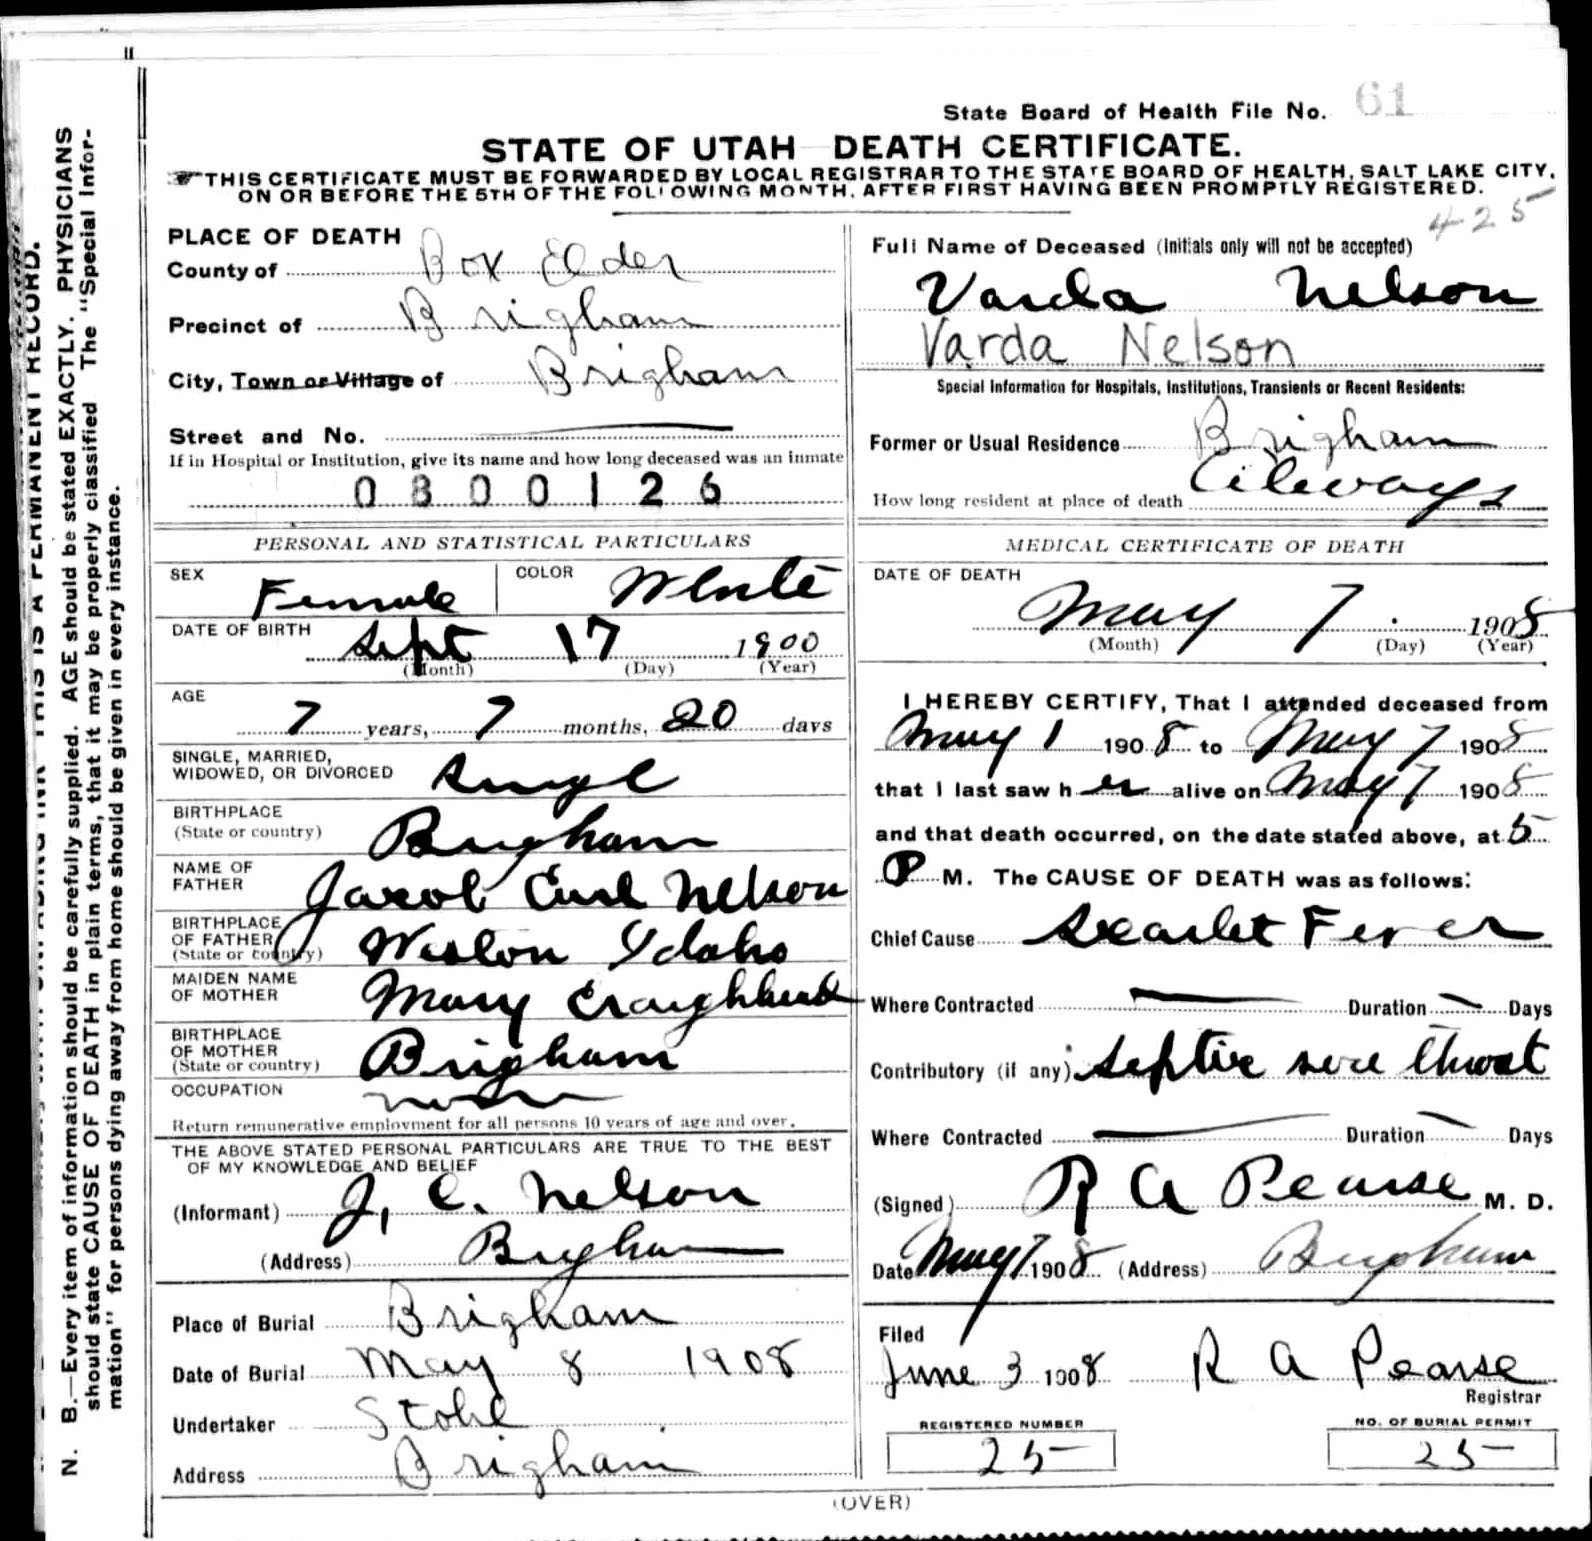 State Board of Health File No. 61
STATE OF UTAH DEATH CERTIFICATE.
THIS CERTIFICATE MUST BE FORWARDED BY LOCAL REGISTRAR TO THE STATE BOARD OF HEALTH, SALT LAKE CITY,
ON OR BEFORE THE 5TH OF THE FOLLOWING MONTH, AFTER FIRST HAVING BEEN PROMPTLY REGISTERED.
425
PLACE OF DEATH
County of Box Elder
Precinct of Brigham
City, Town or Village of Brigham
Street and No.
If in Hospital or Institution, give its name and how long deceased was an inmate
0300126
PERSONAL AND STATISTICAL PARTICULARS
SEX Female COLOR White
DATE OF BIRTH Sept 17 1900
(Month) (Day) (Year)
AGE
7 years, 7 months, 20 days
SINGLE, MARRIED,
WIDOWED, OR DIVORCED Single
BIRTHPLACE
(State or country) Brigham
NAME OF
FATHER Jacob Earl Nelson
BIRTHPLACE
OF FATHER
(State or country) Weston Idaho
MAIDEN NAME
OF MOTHER Mary Craighhead
BIRTHPLACE
OF MOTHER
(State or country) Brigham
OCCUPATION
Return remunerative employment for all persons 10 years of age and over.
THE ABOVE STATED PERSONAL PARTICULARS ARE TRUE TO THE BEST
OF MY KNOWLEDGE AND BELIEF
(Informant) J, E. Nelson
(Address) Brigham
Place of Burial Brigham
Date of Burial May 8 1908
Undertaker Stohl
Address Brigham
Full Name of Deceased (Initials only will not be accepted)
Varda Nelson
Varda Nelson
Special Information for Hospitals, Institutions, Transients or Recent Residents:
Former or Usual Residence Brigham
How long resident at place of death Always
MEDICAL CERTIFICATE OF DEATH
DATE OF DEATH
May 7 1908
(Month) (Day) (Year)
I HEREBY CERTIFY, That I attended deceased from
May 1 1908 to May 7 1908
that I last saw her alive on May 7 1908
and that death occurred, on the date stated above, at 5
P M. The CAUSE OF DEATH was as follows:
Chief Cause Scarlet Fever
Where Contracted Duration Days
Contributory (if any) Septic sore throat
Where Contracted Duration Days
(Signed) R A Pearse M. D.
Date May 7 1908 (Address) Brigham
Filed
June 3 1908 R A Pearse
Registrar
REGISTERED NUMBER
25
NO. OF BURIAL PERMIT
25
(OVER)
THIS IS A PERMANENT RECORD.
N. B.—Every item of information should be carefully supplied. AGE should be stated EXACTLY. PHYSICIANS
should state CAUSE OF DEATH in plain terms, that it may be properly classified The "Special Infor-
mation" for persons dying away from home should be given in every instance.